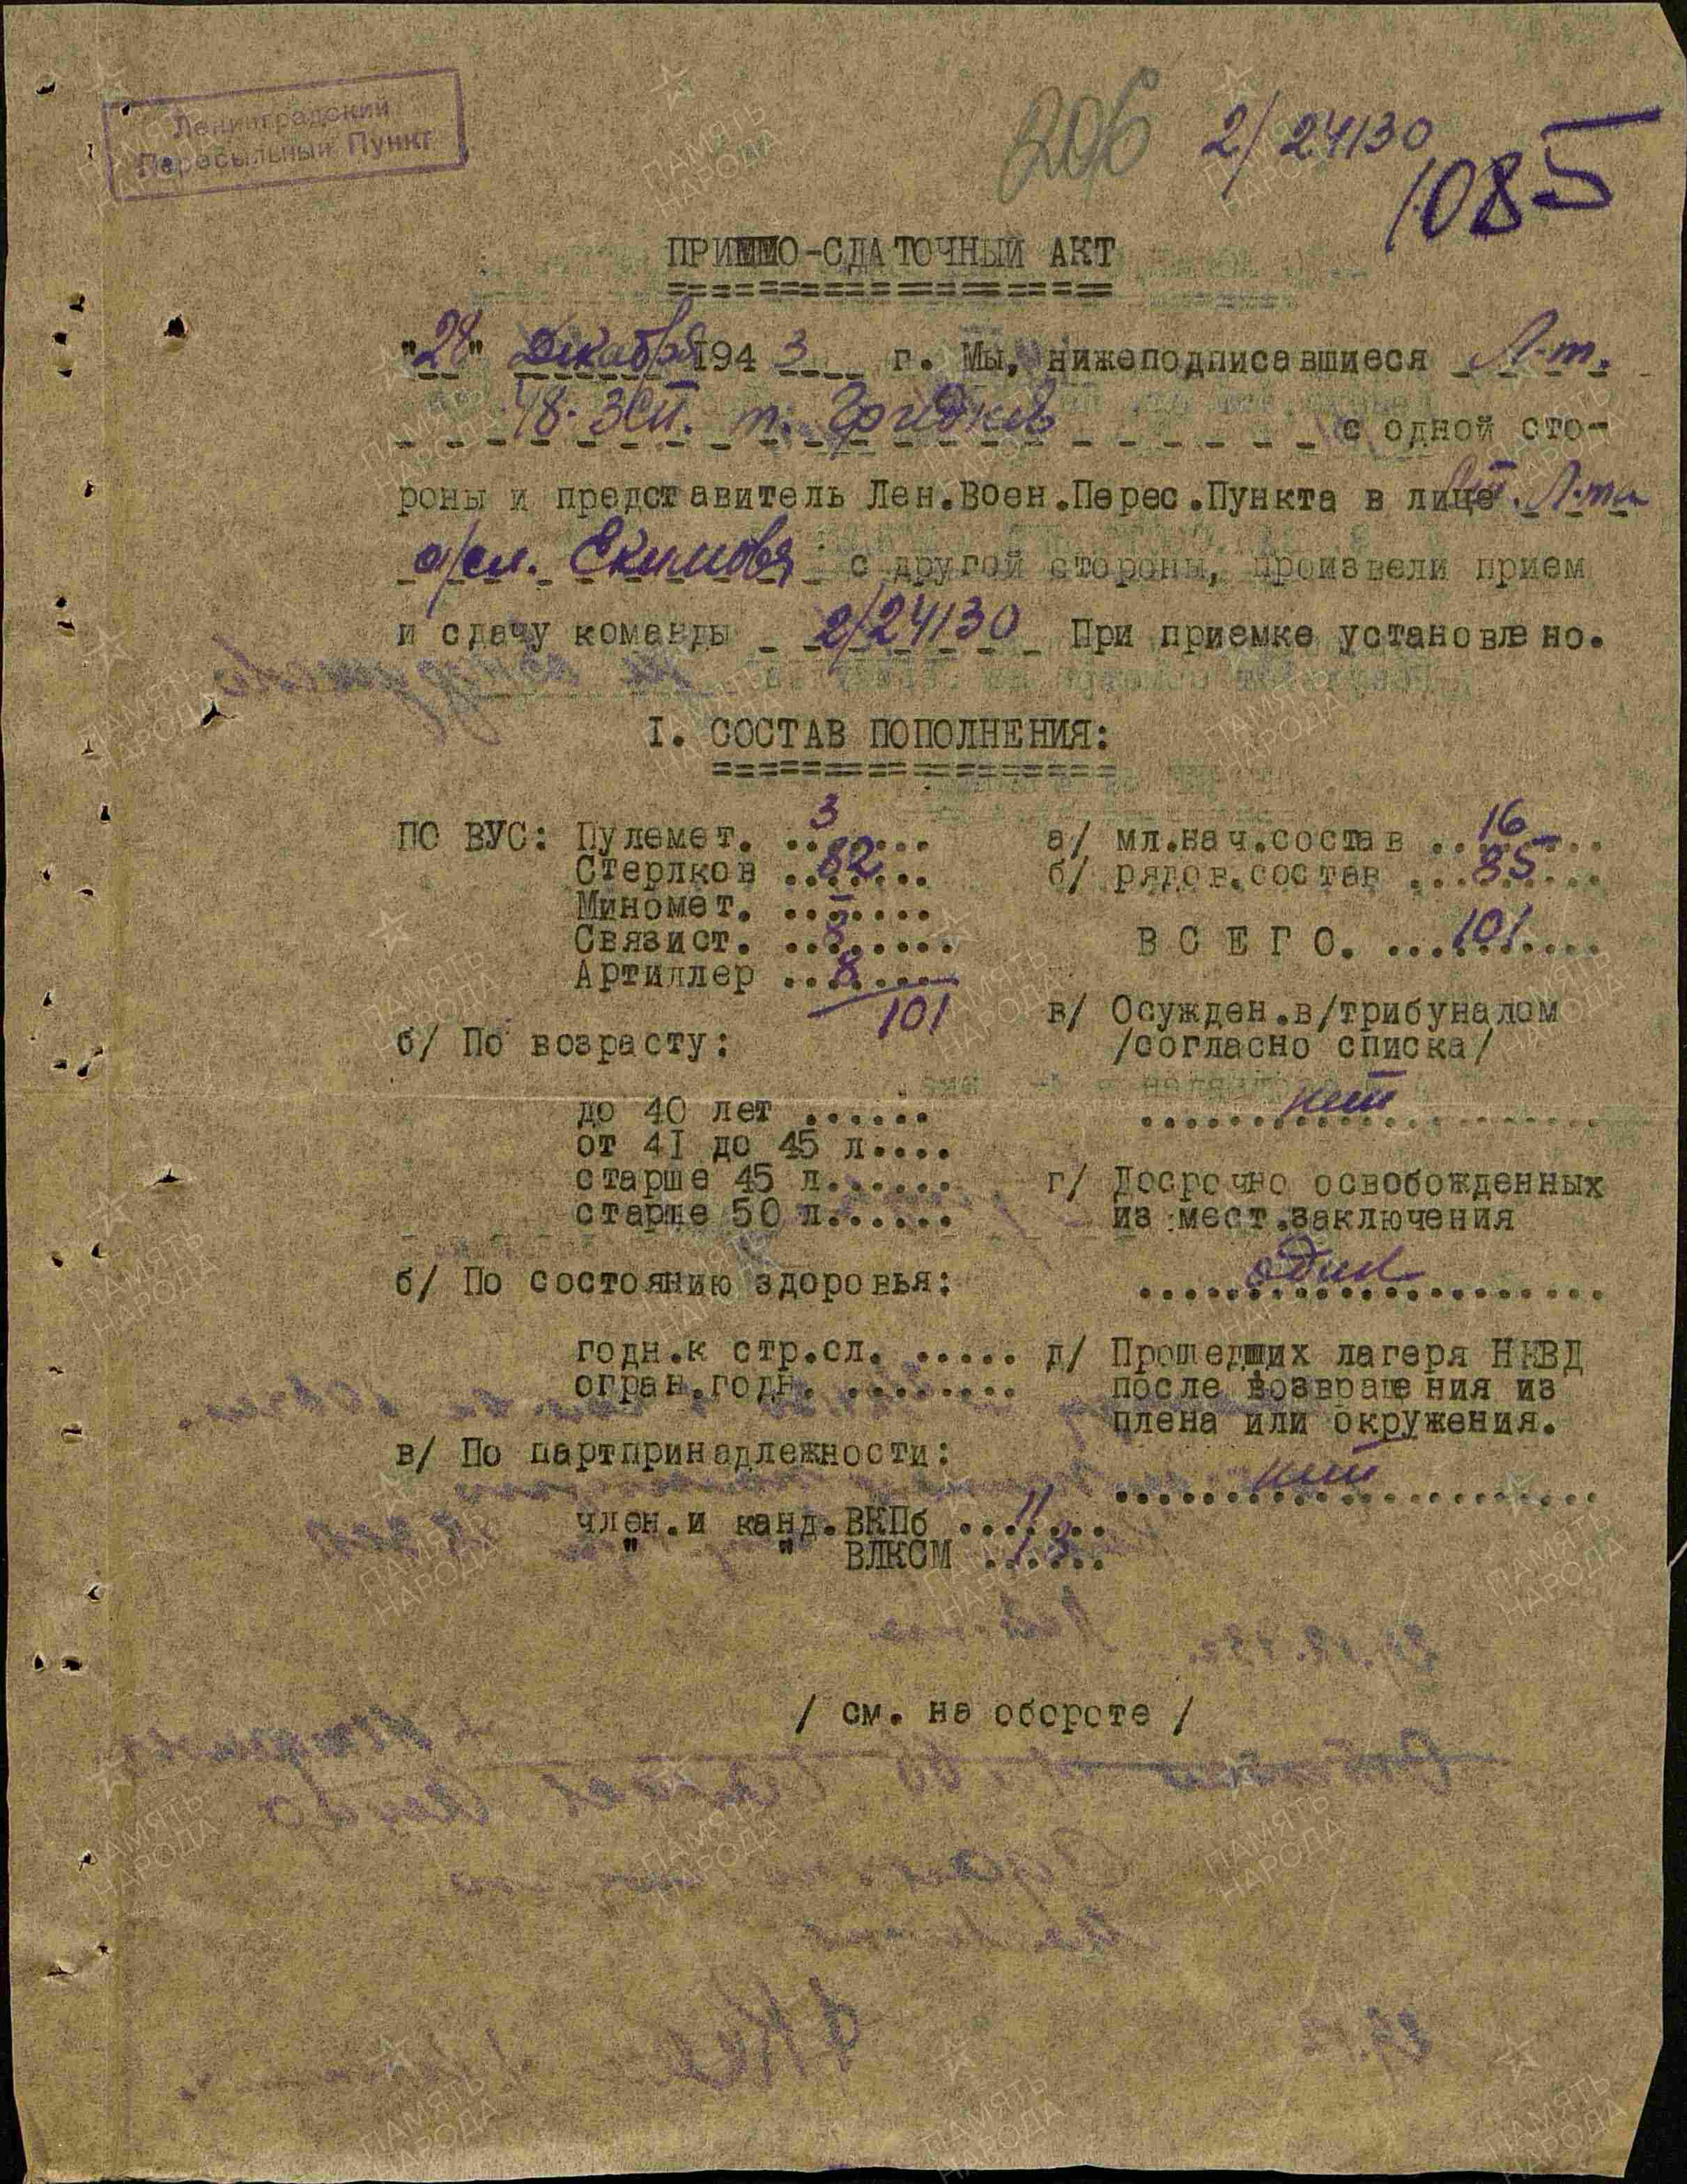 Ленинградский
Пересыльный Пункт
206 2/24130
1085
ПРИЕМО-СДАТОЧНЫЙ АКТ
"28" Декабря 194 3 г. Мы, нижеподписавшиеся Л-т.
48. ЗСП. т. с одной сто-
роны и представитель Лен.Воен.Перес.Пункта в лице Л-та
а/сл. Екимова с другой стороны, произвели прием
и сдачу команды 2/24130 При приемке установлено.
I. СОСТАВ ПОПОЛНЕНИЯ:
ПО ВУС: Пулемет. ..3.....
Стерлков ..82....
Миномет. ..-....
Связист. ..8.....
Артиллер ..8....
101
б/ По возрасту:
до 40 лет ......
от 4I до 45 л....
старше 45 л......
старше 50 л......
б/ По состоянию здоровья:
годн.к стр.сл. .....
огран.годн. ........
в/ По партпринадлежности:
член.и канд.ВКПб ..11...
" " ВЛКСМ ..13..
а/ мл.нач.состав ..16....
б/ рядов.состав ...85....
В С Е Г О. ...101....
в/ Осужден.в/трибуналом
/согласно списка/
нет
г/ Досрочно освобожденных
из мест.заключения
один
д/ Прошедших лагеря НКВД
после возвращения из
плена или окружения.
нет
/ см. на обороте /
ПАМЯТЬ
НАРОДА